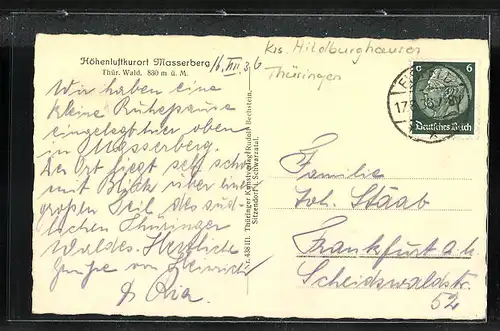 Höhenluftkurort Masserberg
Thür. Wald. 830 m ü. M.
16. VIII. 36
Wir haben eine
kleine Ruhepause
eingelegt hier oben
in Masserberg.
Der Ort liegt sehr schön
mit Blick über einen
großen Teil des süd-
lichen Thüringer
Waldes. Herzliche
Grüße von Heinrich
& Ria.
Nr. 438 III. Thüringer Kunstverlag Rudolf Bechstein,
Sitzendorf i. Schwarzatal.
Krs. Hildburghausen
Thüringen
6 6
Deutsches Reich
Familie
Joh. Staab
Frankfurt a. M.
Scheidswaldstr.
52